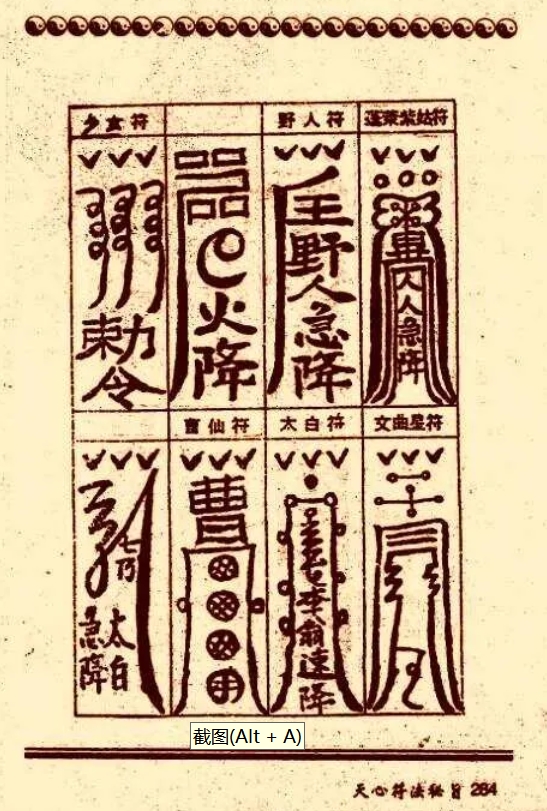 蓬萊紫姑符
人急降
野人符
王野人急降
火降
符
勅令
文曲星符
太白符
李翁速降
曹仙符
曹
太白
急降
截图(Alt + A)
天心符法秘旨 284